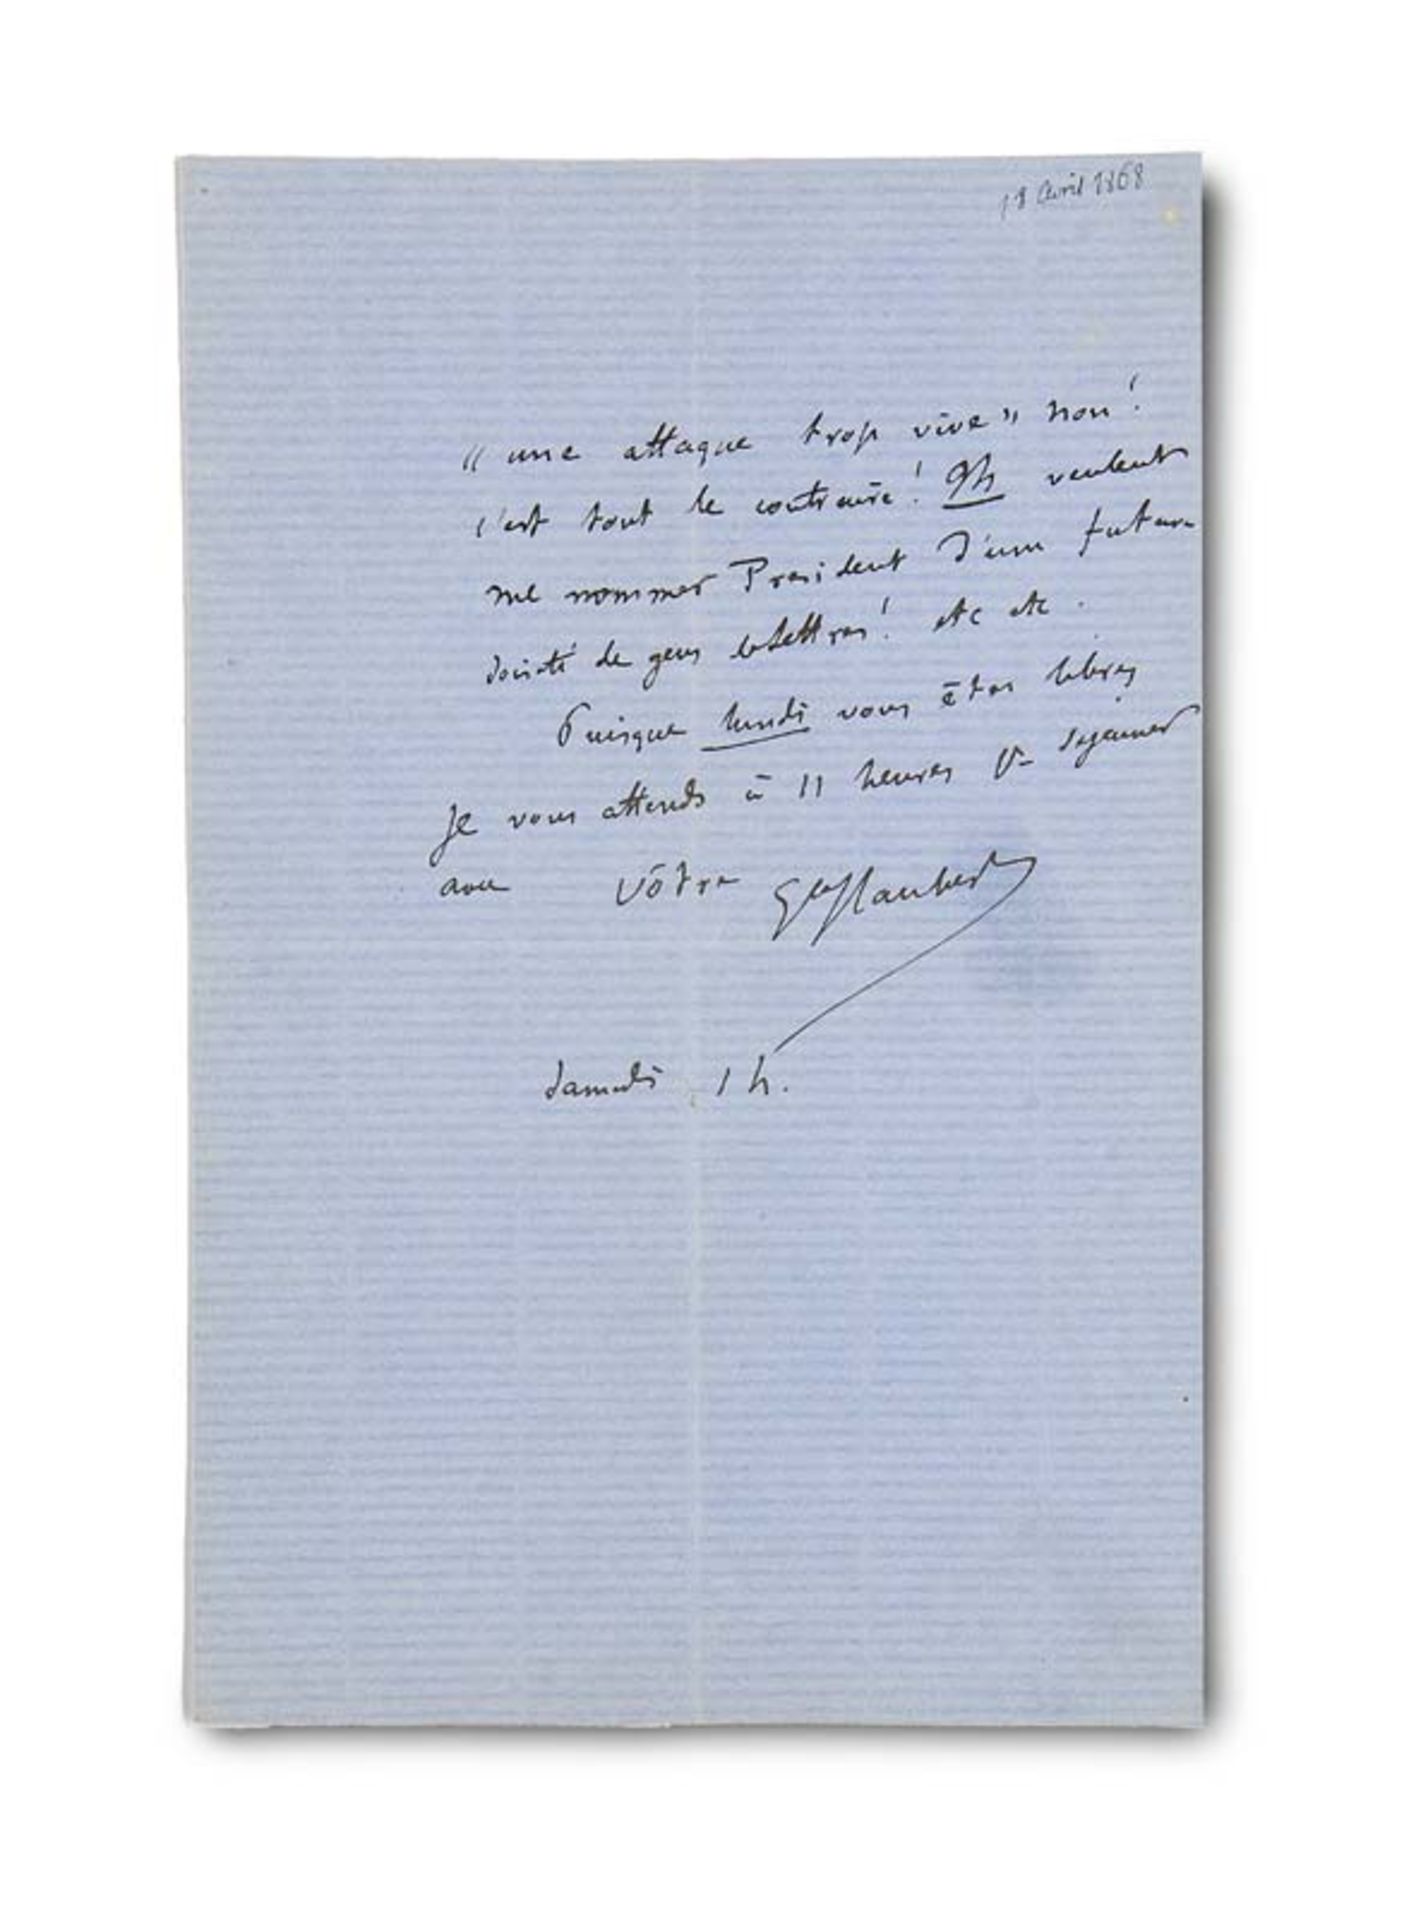 18 avril 1868
« une attaque trop vive » non!
c'est tout le contraire! Ils veulent
me nommer President d'une future
société de gens de lettres! etc etc.
Puisque lundi vous êtes libres
je vous attends à 11 heures pr dejeuner
avec votre Gve Flaubert
Samedi 1 h.